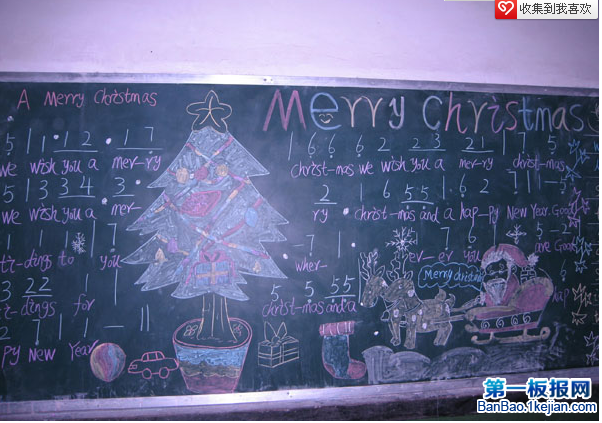 收集到我喜欢
A Merry Christmas
Merry Christmas
5 1 1 1 2 1 7
we wish you a mer-ry
1 6 6 6 2 2 2 3 2 1 7 1 5
christ-mas we wish you a mer-ry christ-mas
5 1 3 3 4 3
we wish you a mer-
1 6 5 5 1 6 2 7 1
ry christ-mas and a hap-py New Year. Good
ti-dings to you
wher-
ev-er you are Good
Merry christmas
3 2 2 1 1
ti-dings for
5 5 5 5
christ-mas and a
hap
2 7 1 1 — 11
py New Year
第一板报网
BanBao.1kejian.com